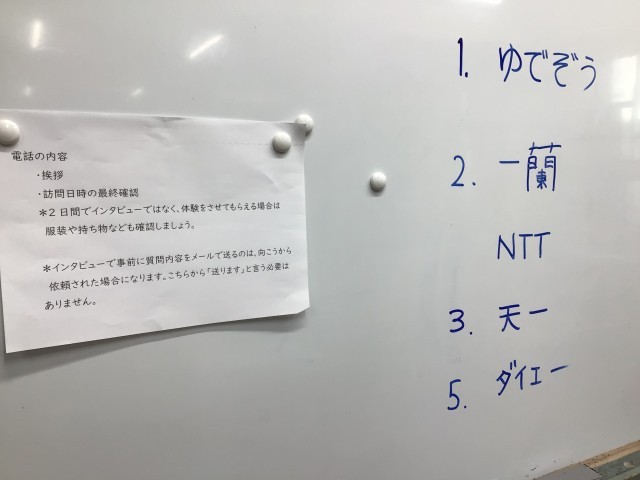 電話の内容
・挨拶
・訪問日時の最終確認
＊２日間でインタビューではなく、体験をさせてもらえる場合は
服装や持ち物なども確認しましょう。
＊インタビューで事前に質問内容をメールで送るのは、向こうから
依頼された場合になります。こちらから「送ります」と言う必要は
ありません。
1. ゆでぞう
2. 一蘭
NTT
3. 天一
5. ダイエー